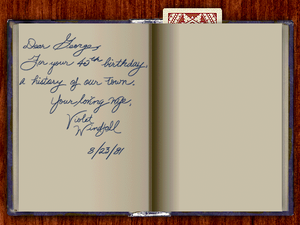 Dear George,
For your 45th birthday.
A history of our town.
Your loving wife,
Violet
Windfall
8/23/81